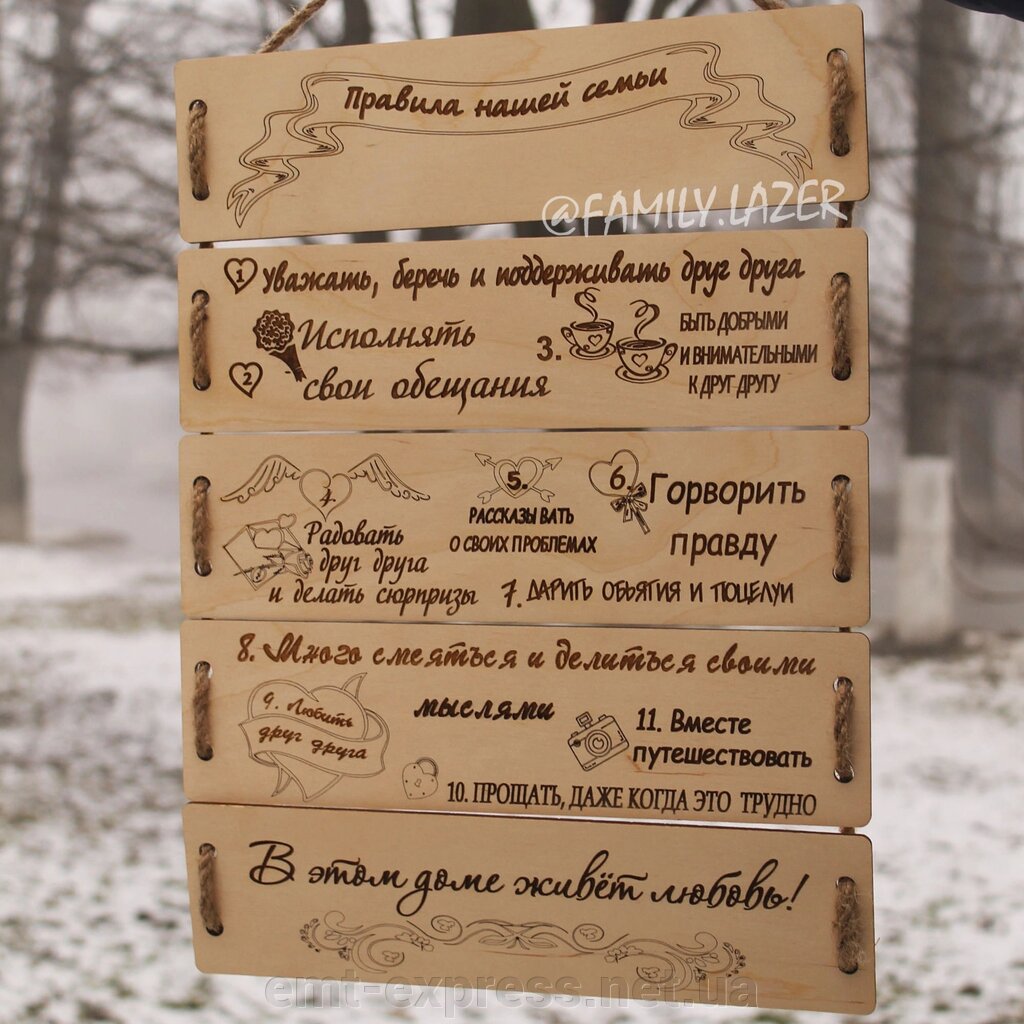 Правила нашей семьи
@FAMILY.LAZER
1 Уважать, беречь и поддерживать друг друга
2 Исполнять
свои обещания
3. БЫТЬ ДОБРЫМИ
И ВНИМАТЕЛЬНЫМИ
К ДРУГ ДРУГУ
4.
Радовать
друг друга
и делать сюрпризы
5.
РАССКАЗЫ ВАТЬ
О СВОИХ ПРОБЛЕМАХ
6. Горворить
правду
7. ДАРИТЬ ОБЬЯТИЯ И ПОЦЕЛУИ
8. Много смеяться и делиться своими
мыслями
9. Любить
друг друга
11. Вместе
путешествовать
10. ПРОЩАТЬ, ДАЖЕ КОГДА ЭТО ТРУДНО
В этом доме живёт любовь!
emt-express.net.ua